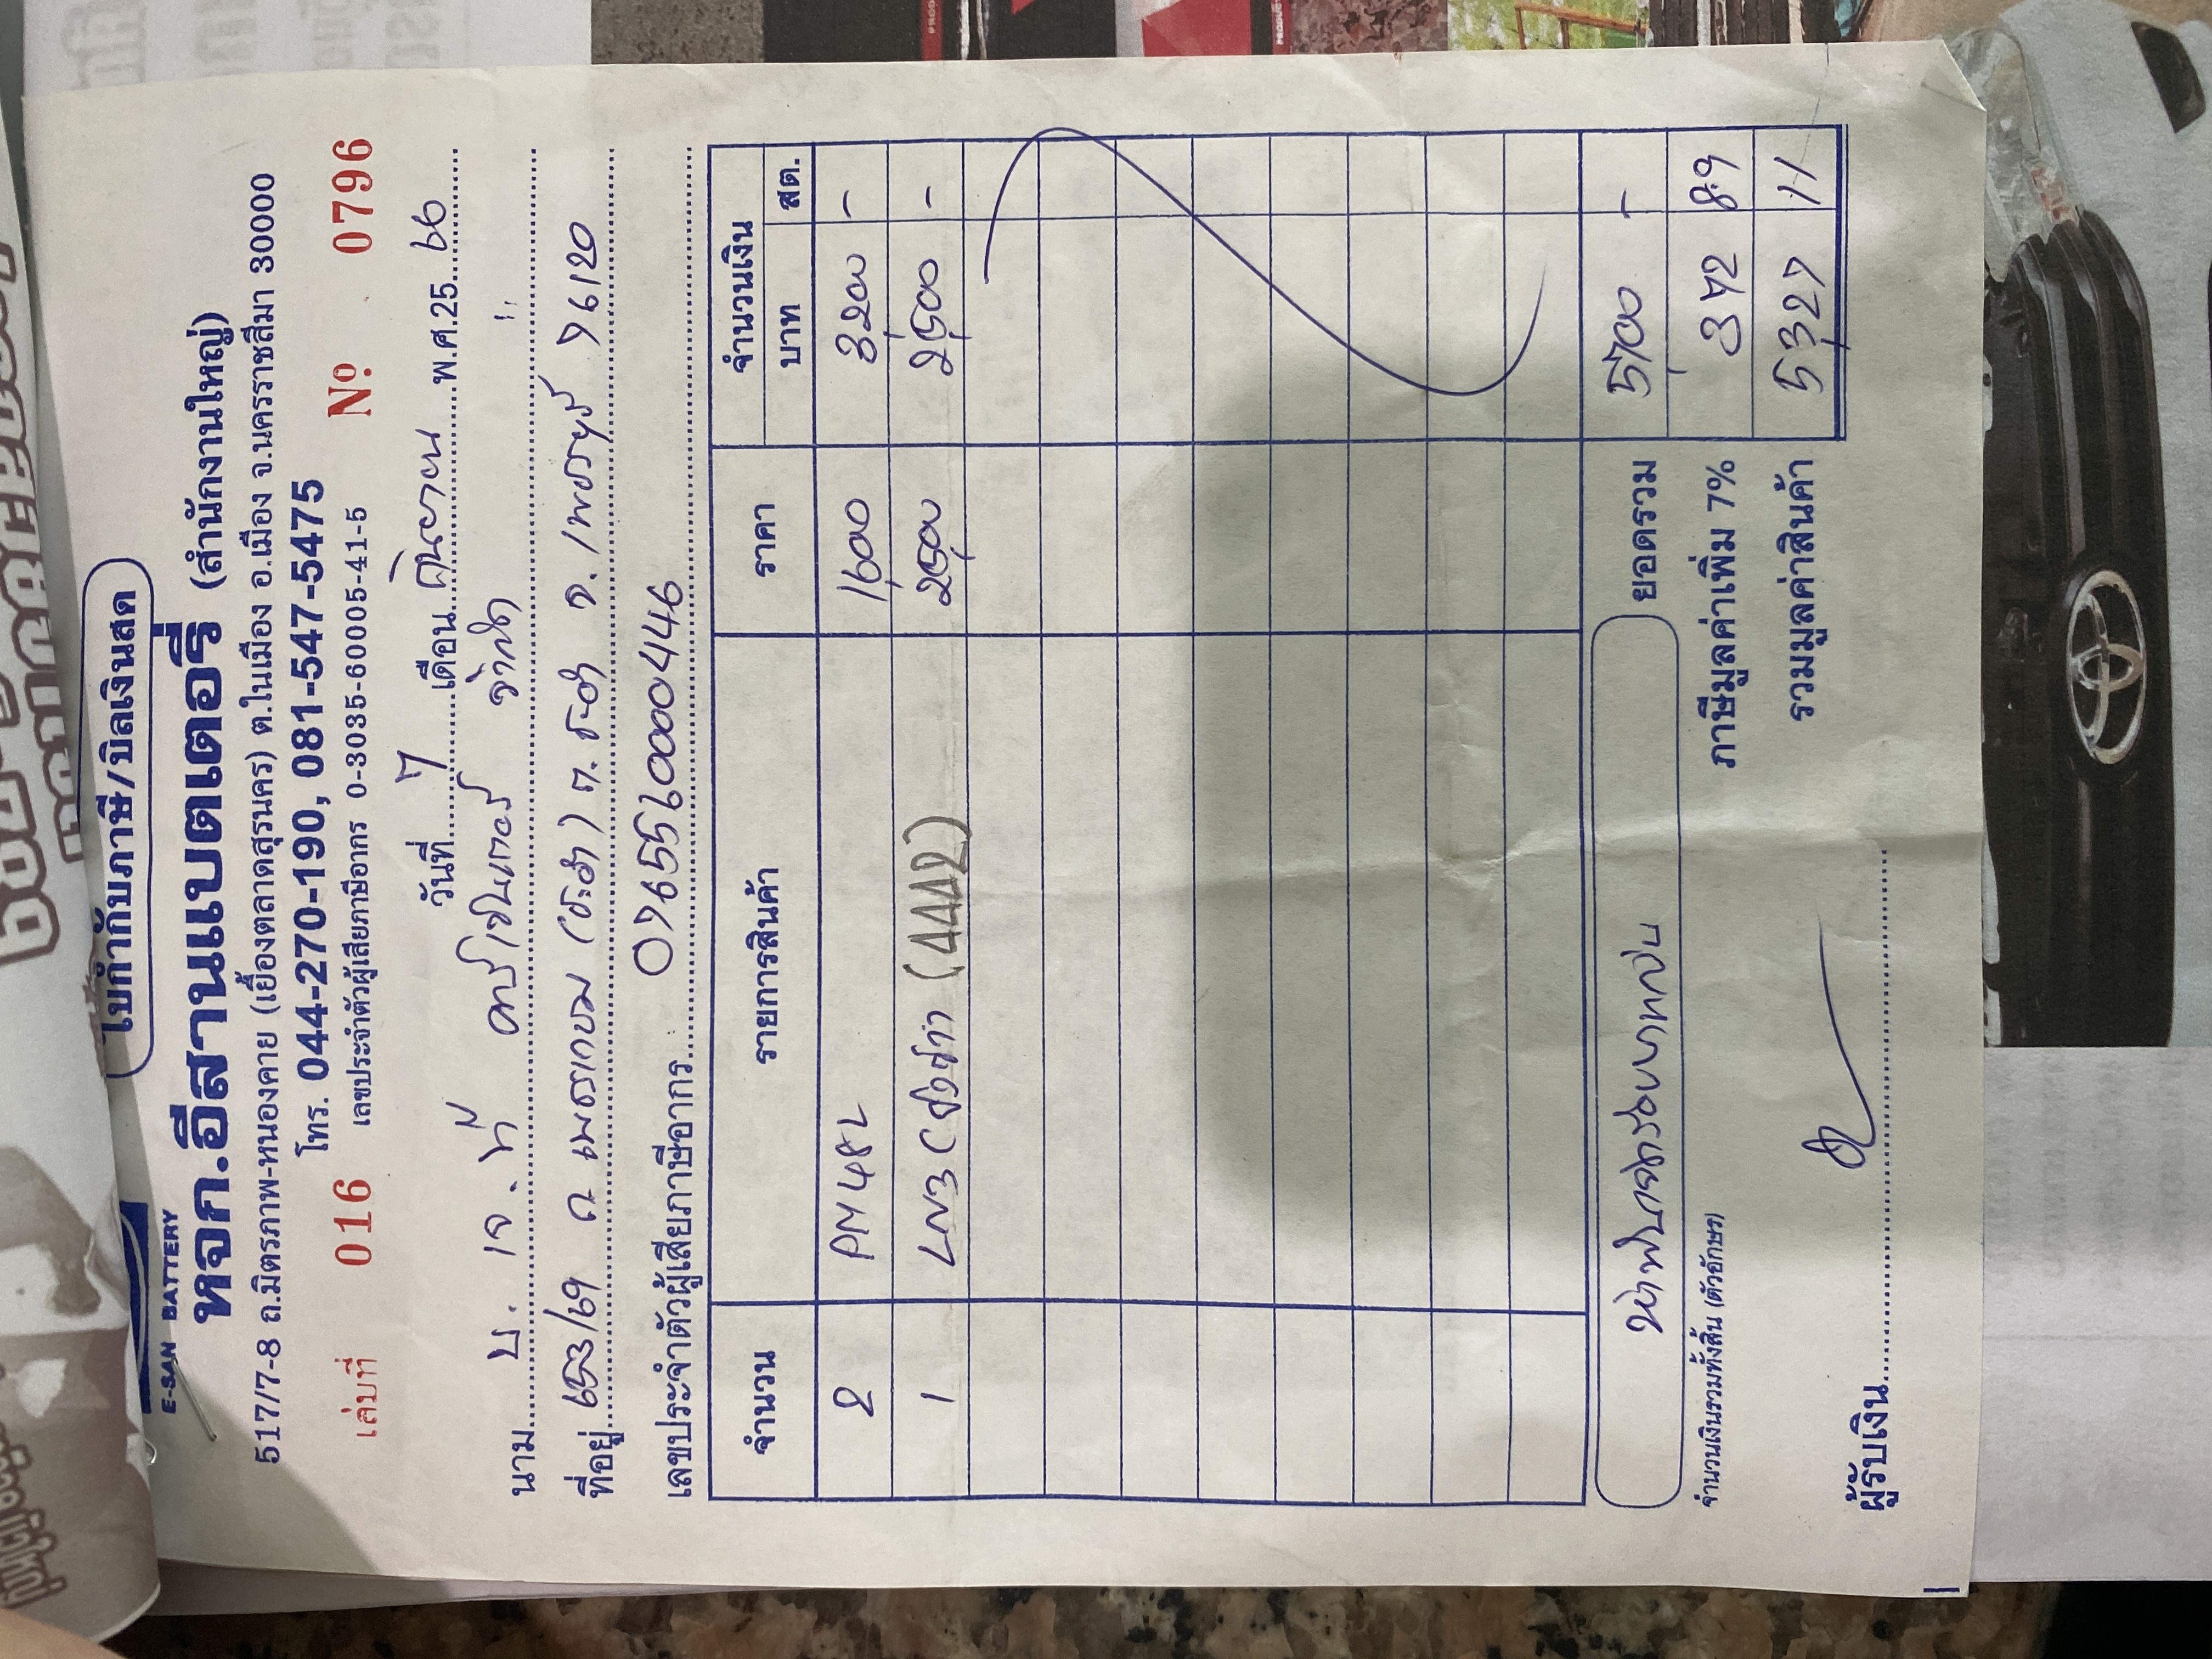 ใบกำกับภาษี/บิลเงินสด
E-SAN BATTERY
หจก.อีสานแบตเตอรี่ (สำนักงานใหญ่)
517/7-8 ถ.มิตรภาพ-หนองคาย (เยื้องตลาดสุรนคร) ต.ในเมือง อ.เมือง จ.นครราชสีมา 30000
โทร. 044-270-190, 081-547-5475
เล่มที่ 016 เลขประจำตัวผู้เสียภาษีอากร 0-3035-60005-41-5 Nº 0796
วันที่ 7 เดือน มิถุนายน พ.ศ.25 66
นาม บ. เจ.ที คาร์เซ็นเตอร์ จำกัด
ที่อยู่ 653/69 ถ เพชรเกษม (ชะอำ) ต. ชะอำ จ. เพชรบุรี 76120
เลขประจำตัวผู้เสียภาษีอากร 0765560000446
จำนวน รายการสินค้า ราคา จำนวนเงิน
บาท สต.
2 PM 48L 1,600 3,200 -
1 LN3 (4442) 2,500 2,500 -
ยอดรวม 5,700 -
ภาษีมูลค่าเพิ่ม 7% 372 89
รวมมูลค่าสินค้า 5,327 11
ห้าพันเจ็ดร้อยบาทถ้วน
จำนวนเงินรวมทั้งสิ้น (ตัวอักษร)
ผู้รับเงิน